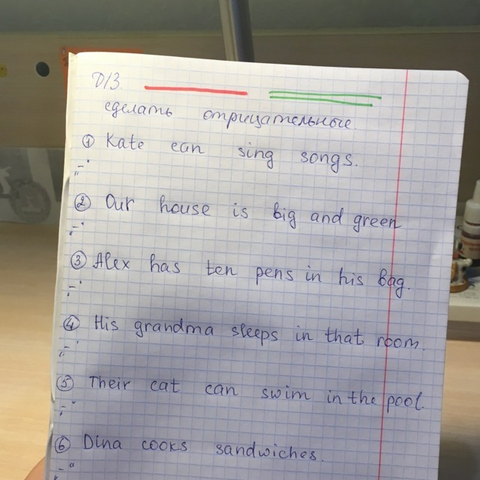 Д/З.
сделать отрицательные
① Kate can sing songs.
„-"
② Our house is big and green
„-"
③ Alex has ten pens in his bag.
„-"
④ His grandma sleeps in that room.
„-"
⑤ Their cat can swim in the pool.
„-"
⑥ Dina cooks sandwiches.
„-"